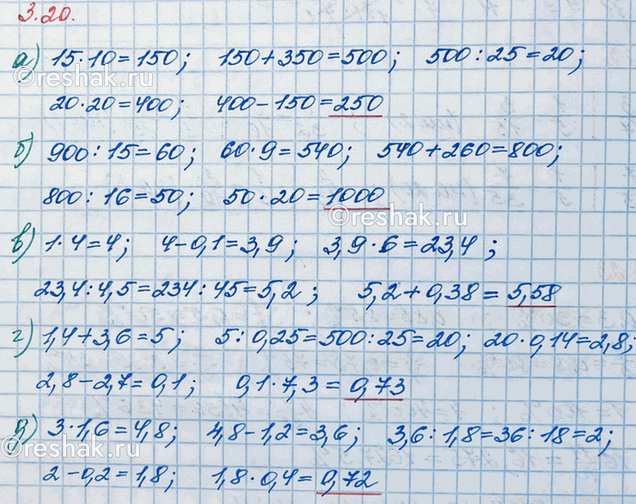 3.20.
а) 15·10=150; 150+350=500; 500:25=20;
20·20=400; 400-150=250
б) 900:15=60; 60·9=540; 540+260=800;
800:16=50; 50·20=1000
©reshak.ru
в) 1·4=4; 4-0,1=3,9; 3,9·6=23,4;
23,4:4,5=234:45=5,2; 5,2+0,38=5,58
г) 1,4+3,6=5; 5:0,25=500:25=20; 20·0,14=2,8;
2,8-2,7=0,1; 0,1·7,3=0,73
д) 3·1,6=4,8; 4,8-1,2=3,6; 3,6:1,8=36:18=2;
©reshak.ru
2-0,2=1,8; 1,8·0,4=0,72